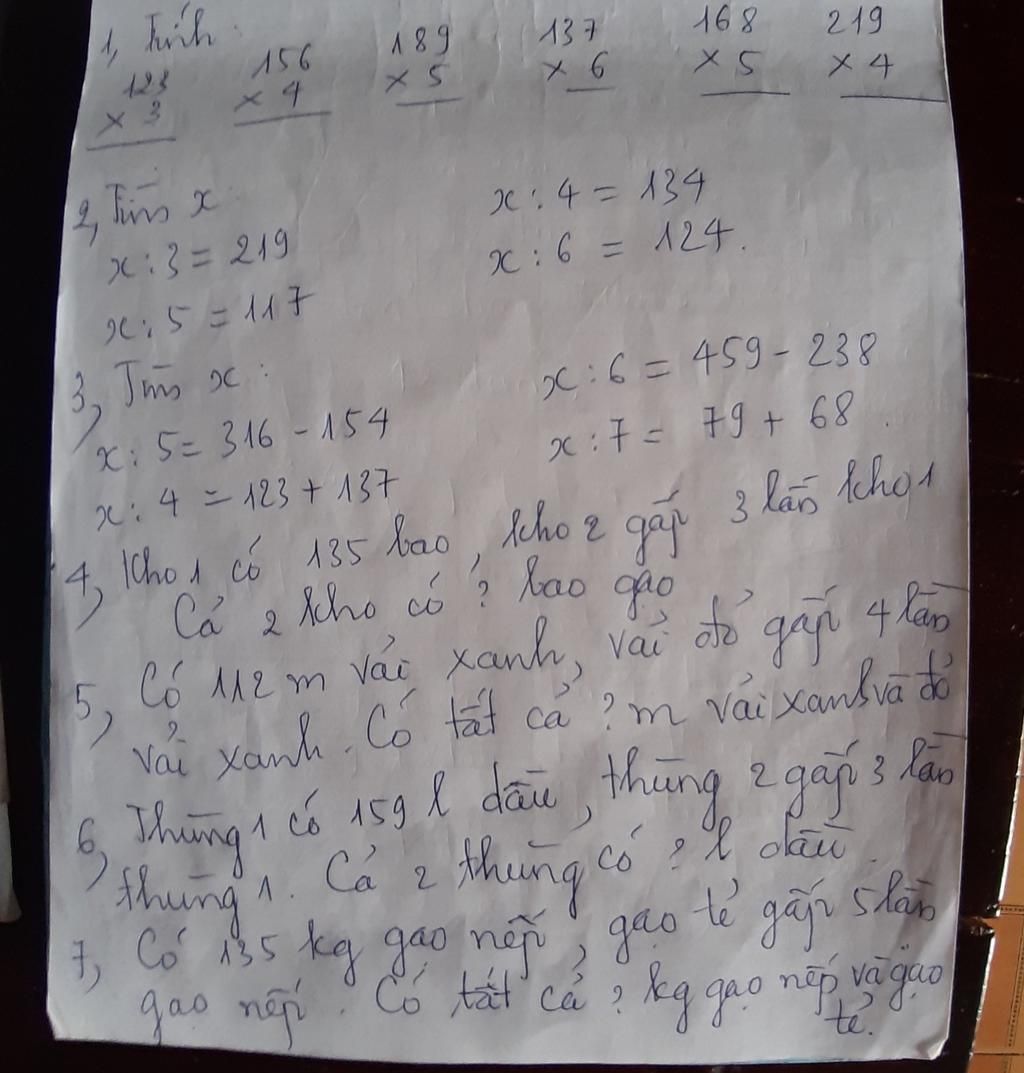 1, Tính:
123 156 189 137 168 219
× 3 × 4 × 5 × 6 × 5 × 4
2, Tìm x:
x : 3 = 219 x : 4 = 134
x : 5 = 117 x : 6 = 124.
3, Tìm x :
x : 5 = 316 - 154 x : 6 = 459 - 238
x : 4 = 123 + 137 x : 7 = 79 + 68.
4, Kho 1 có 135 bao, kho 2 gấp 3 lần kho 1
Cả 2 kho có ? bao gạo
5, Có 112 m vải xanh, vải đỏ gấp 4 lần
vải xanh. Có tất cả ? m vải xanh và đỏ
6, Thùng 1 có 159 l dầu, thùng 2 gấp 3 lần
thùng 1. Cả 2 thùng có ? l dầu.
7, Có 135 kg gạo nếp, gạo tẻ gấp 5 lần
gạo nếp. Có tất cả ? kg gạo nếp và gạo
tẻ.